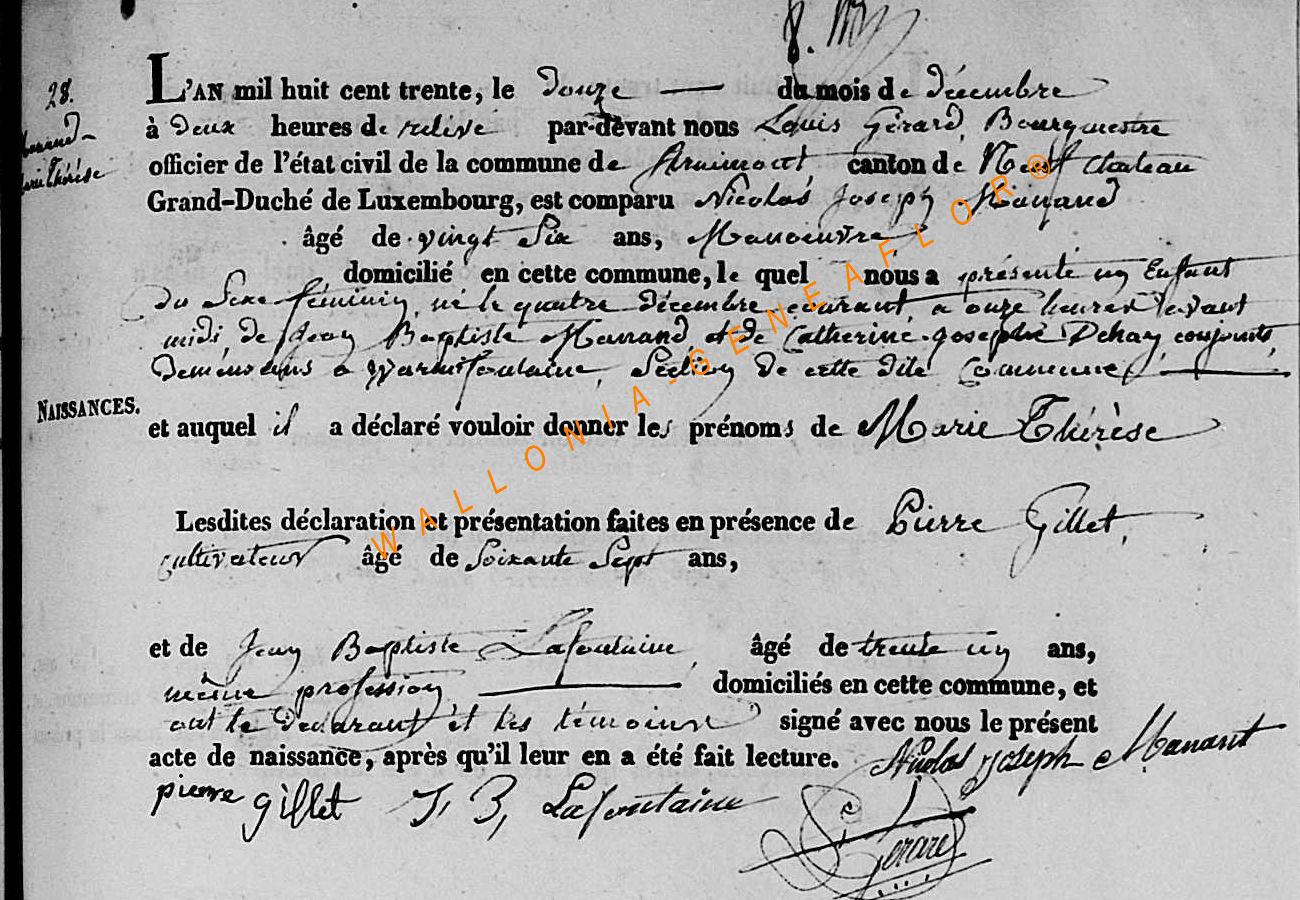 28.
L'AN mil huit cent trente, le douze du mois de décembre
à deux heures de relevé par-devant nous Louis Gérard, Bourgmestre
officier de l'état civil de la commune de canton de Neufchateau
Marie Thérèse
Grand-Duché de Luxembourg, est comparu Nicolas Joseph Manand
âgé de vingt Six ans, Manoeuvre
domicilié en cette commune, le quel nous a présenté un Enfant
du Sexe féminin, né le quatre décembre courant, a onze heures avant
midi, de Jean Baptiste Manand, et de Catherine Josephe Dehay, conjoints,
Demeurans a Warmifontaine, Section de cette dite Commune
NAISSANCES.
et auquel il a déclaré vouloir donner les prénoms de Marie Thérèse
Lesdites déclaration et présentation faites en présence de Pierre Gillet,
cultivateur âgé de Soixante Sept ans,
et de Jean Baptiste Lafontaine, âgé de trente un ans,
même profession domiciliés en cette commune, et
ont le déclarant et les témoins signé avec nous le présent
acte de naissance, après qu'il leur en a été fait lecture. Nicolas joseph Manant
pierre gillet J B, Lafontaine
Gerard
WALLONIA-GENEAFLOR®